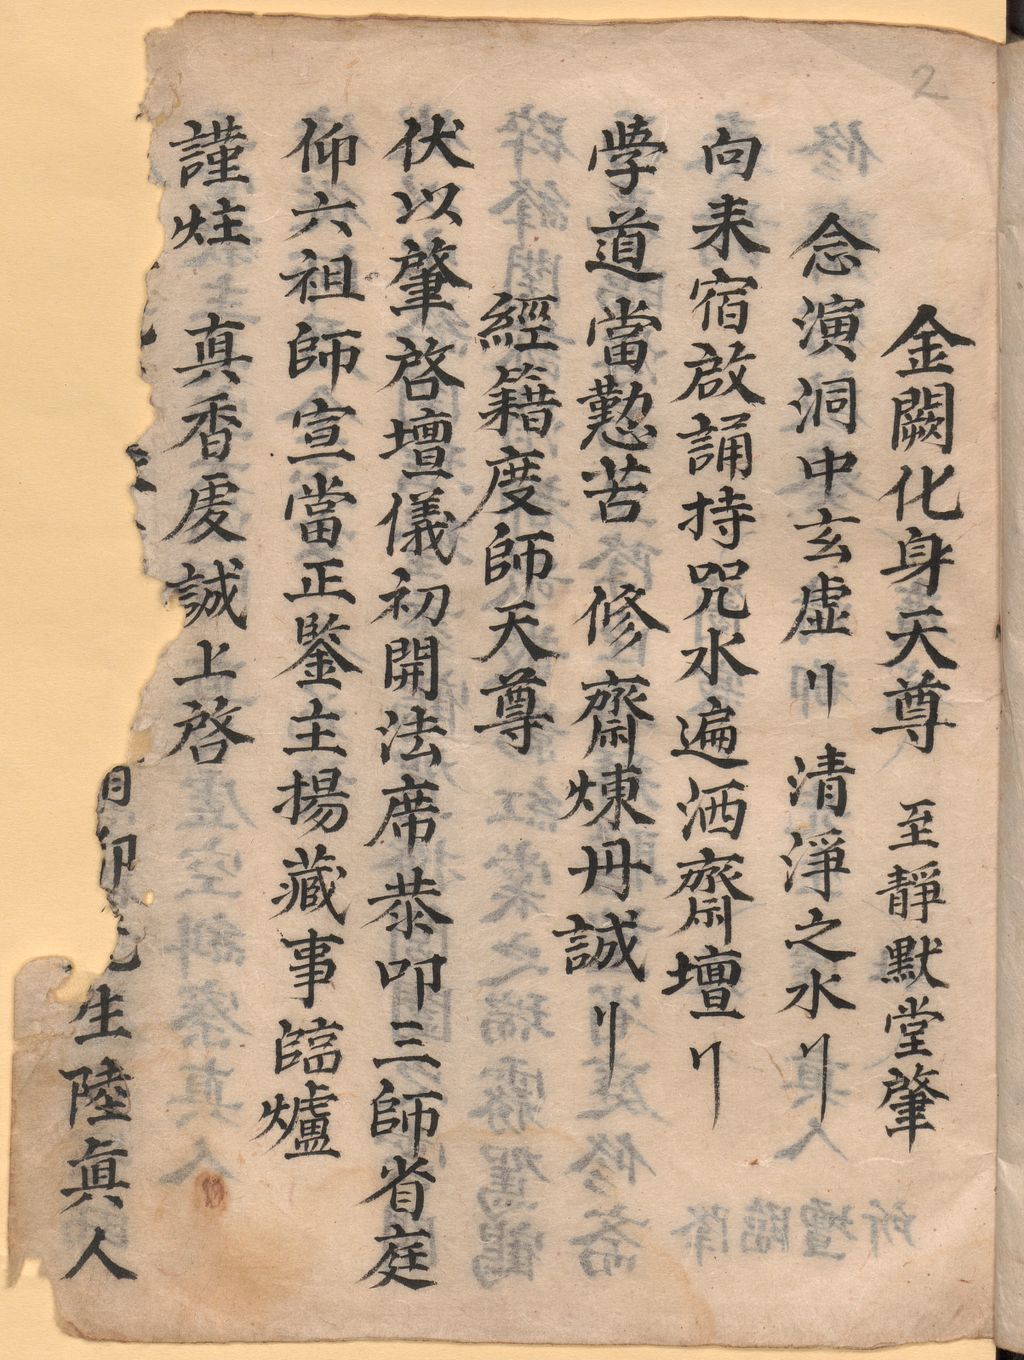 2
金闕化身天尊　至靜默堂肇
念演洞中玄虛〢清淨之水〢
向来宿啟誦持咒水遍洒齋壇〢
學道當懃苦　修齋煉丹誠〢
經籍度師天尊
伏以肇啓壇儀初開法席恭叩三師省庭
仰六祖師宣當正鑒主揚藏事臨爐
謹炷　真香虔誠上啓
生陸真人